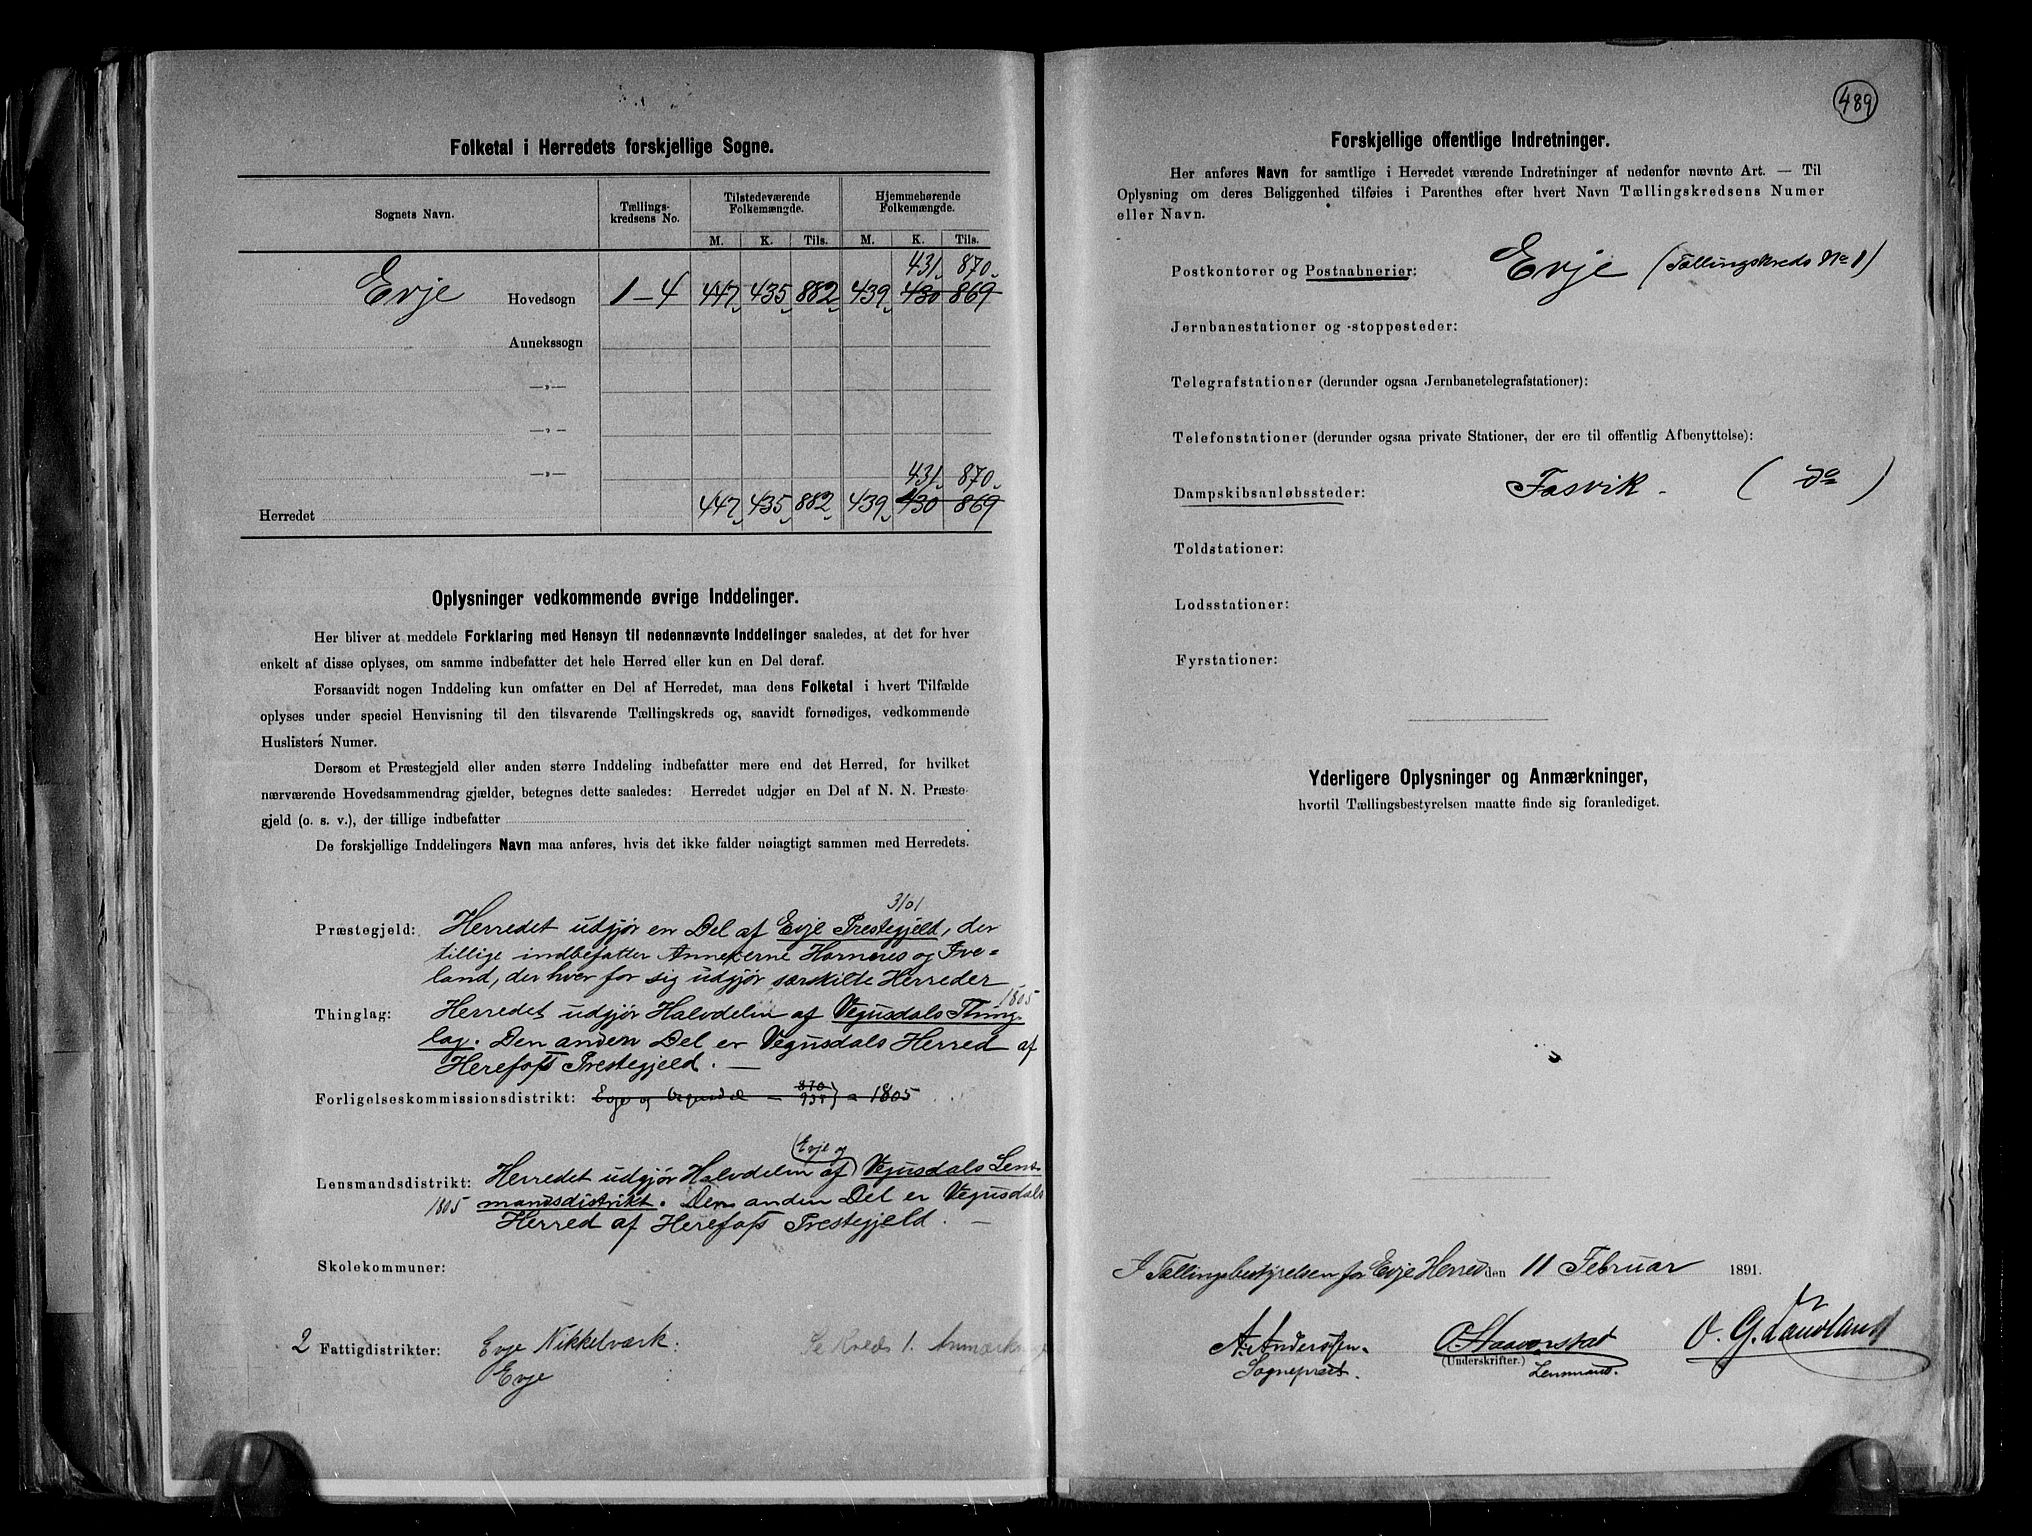 Folketal i Herredets forskjellige Sogne.
Sognets Navn.
Tællings-
kredsens No.
Tilstedeværende
Folkemængde.
Hjemmehørende
Folkemængde.
M. K. Tils. M. K. Tils.
431 870
Evje Hovedsogn 1-4 447 435 882 439 430 869
Annekssogn
—„—
—„—
—„—
431 870
Herredet 447 435 882 439 430 869
Oplysninger vedkommende øvrige Inddelinger.
Her bliver at meddele Forklaring med Hensyn til nedennævnte Inddelinger saaledes, at det for hver
enkelt af disse oplyses, om samme indbefatter det hele Herred eller kun en Del deraf.
Forsaavidt nogen Inddeling kun omfatter en Del af Herredet, maa dens Folketal i hvert Tilfælde
oplyses under speciel Henvisning til den tilsvarende Tællingskreds og, saavidt fornødiges, vedkommende
Huslisters Numer.
Dersom et Præstegjeld eller anden større Inddeling indbefatter mere end det Herred, for hvilket
nærværende Hovedsammendrag gjælder, betegnes dette saaledes: Herredet udgjør en Del af N. N. Præste-
gjeld (o. s. v.), der tillige indbefatter
De forskjellige Inddelingers Navn maa anføres, hvis det ikke falder nøiagtigt sammen med Herredets.
3101
Præstegjeld: Herredet udgjør en Del af Evje Præstegjeld, der
tillige indbefatter Annexerne Hornnes og Ive=
land, der hver for sig udgjør særskilte Herreder
1805
Thinglag: Herredet udgjør Halvdelen af Vegusdals Thing-
lag. Den anden Del er Vegusdals Herred af
Herefoss Præstegjeld. —
Forligelseskommissionsdistrikt: Evje og Vegusdal — 870
935 } = 1805
(Evje og)
Lensmandsdistrikt: Herredet udgjør Halvdelen af Vegusdals Lens-
1805 mandsdistrikt. Den anden Del er Vegusdals
Herred af Herefoss Præstegjeld. —
Skolekommuner:
2 Fattigdistrikter: Evje Nikkelværk: Se Kreds 1. Anmærkn
Evje :
489
Forskjellige offentlige Indretninger.
Her anføres Navn for samtlige i Herredet værende Indretninger af nedenfor nævnte Art. — Til
Oplysning om deres Beliggenhed tilføies i Parenthes efter hvert Navn Tællingskredsens Numer
eller Navn.
Postkontorer og Postaabnerier: Evje (Tællingskreds No 1)
Jernbanestationer og -stoppesteder:
Telegrafstationer (derunder ogsaa Jernbanetelegrafstationer):
Telefonstationer (derunder ogsaa private Stationer, der ere til offentlig Afbenyttelse):
Dampskibsanløbssteder: Fasvik. (Do)
Toldstationer:
Lodsstationer:
Fyrstationer:
Yderligere Oplysninger og Anmærkninger,
hvortil Tællingsbestyrelsen maatte finde sig foranlediget.
I Tællingsbestyrelsen for Evje Herred den 11 Februar 1891.
A. Anderssen. O. G. Lauvland
(Underskrifter.)
Sogneprest. Lensmand.